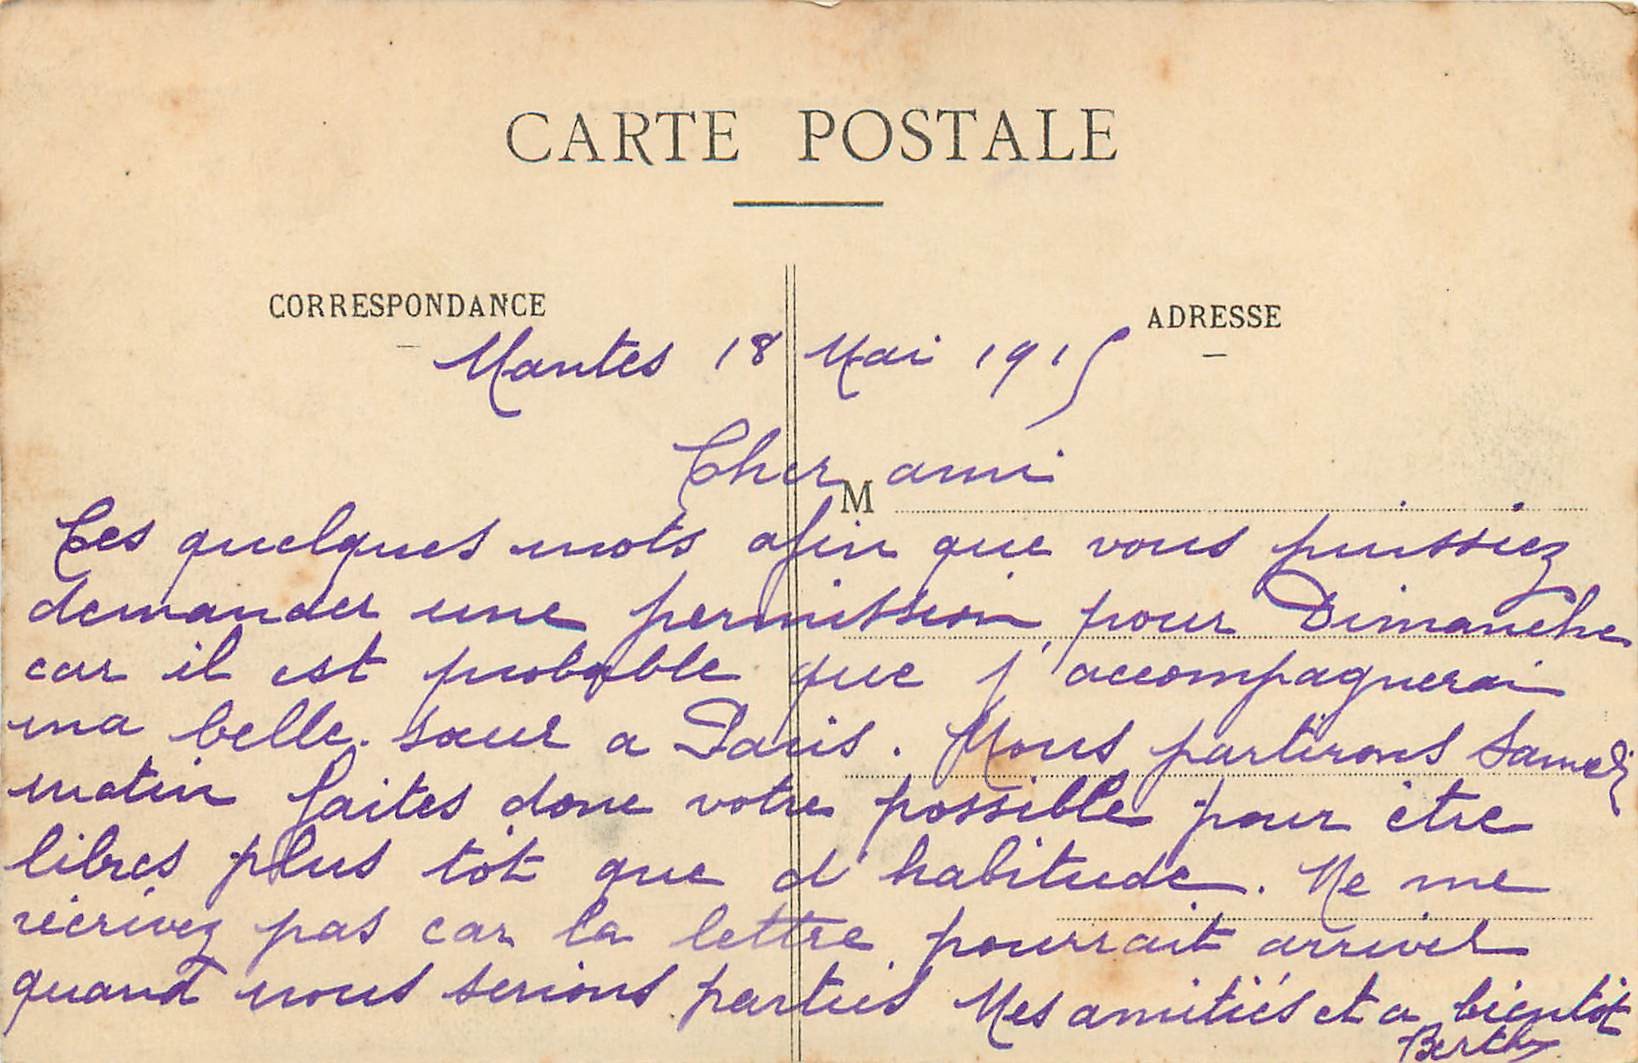 CARTE POSTALE
CORRESPONDANCE
ADRESSE
Mantes 18 Mai 1915
Cher ami
M
Ces quelques mots afin que vous puissiez
demander une permission pour Dimanche
car il est probable que j'accompagnerai
ma belle-sœur a Paris. Nous partirons Samedi
matin faites donc votre possible pour être
libres plus tôt que d'habitude. Ne me
récrivez pas car la lettre pourrait arriver
quand nous serions partis Mes amitiés et a bientôt
Berthe